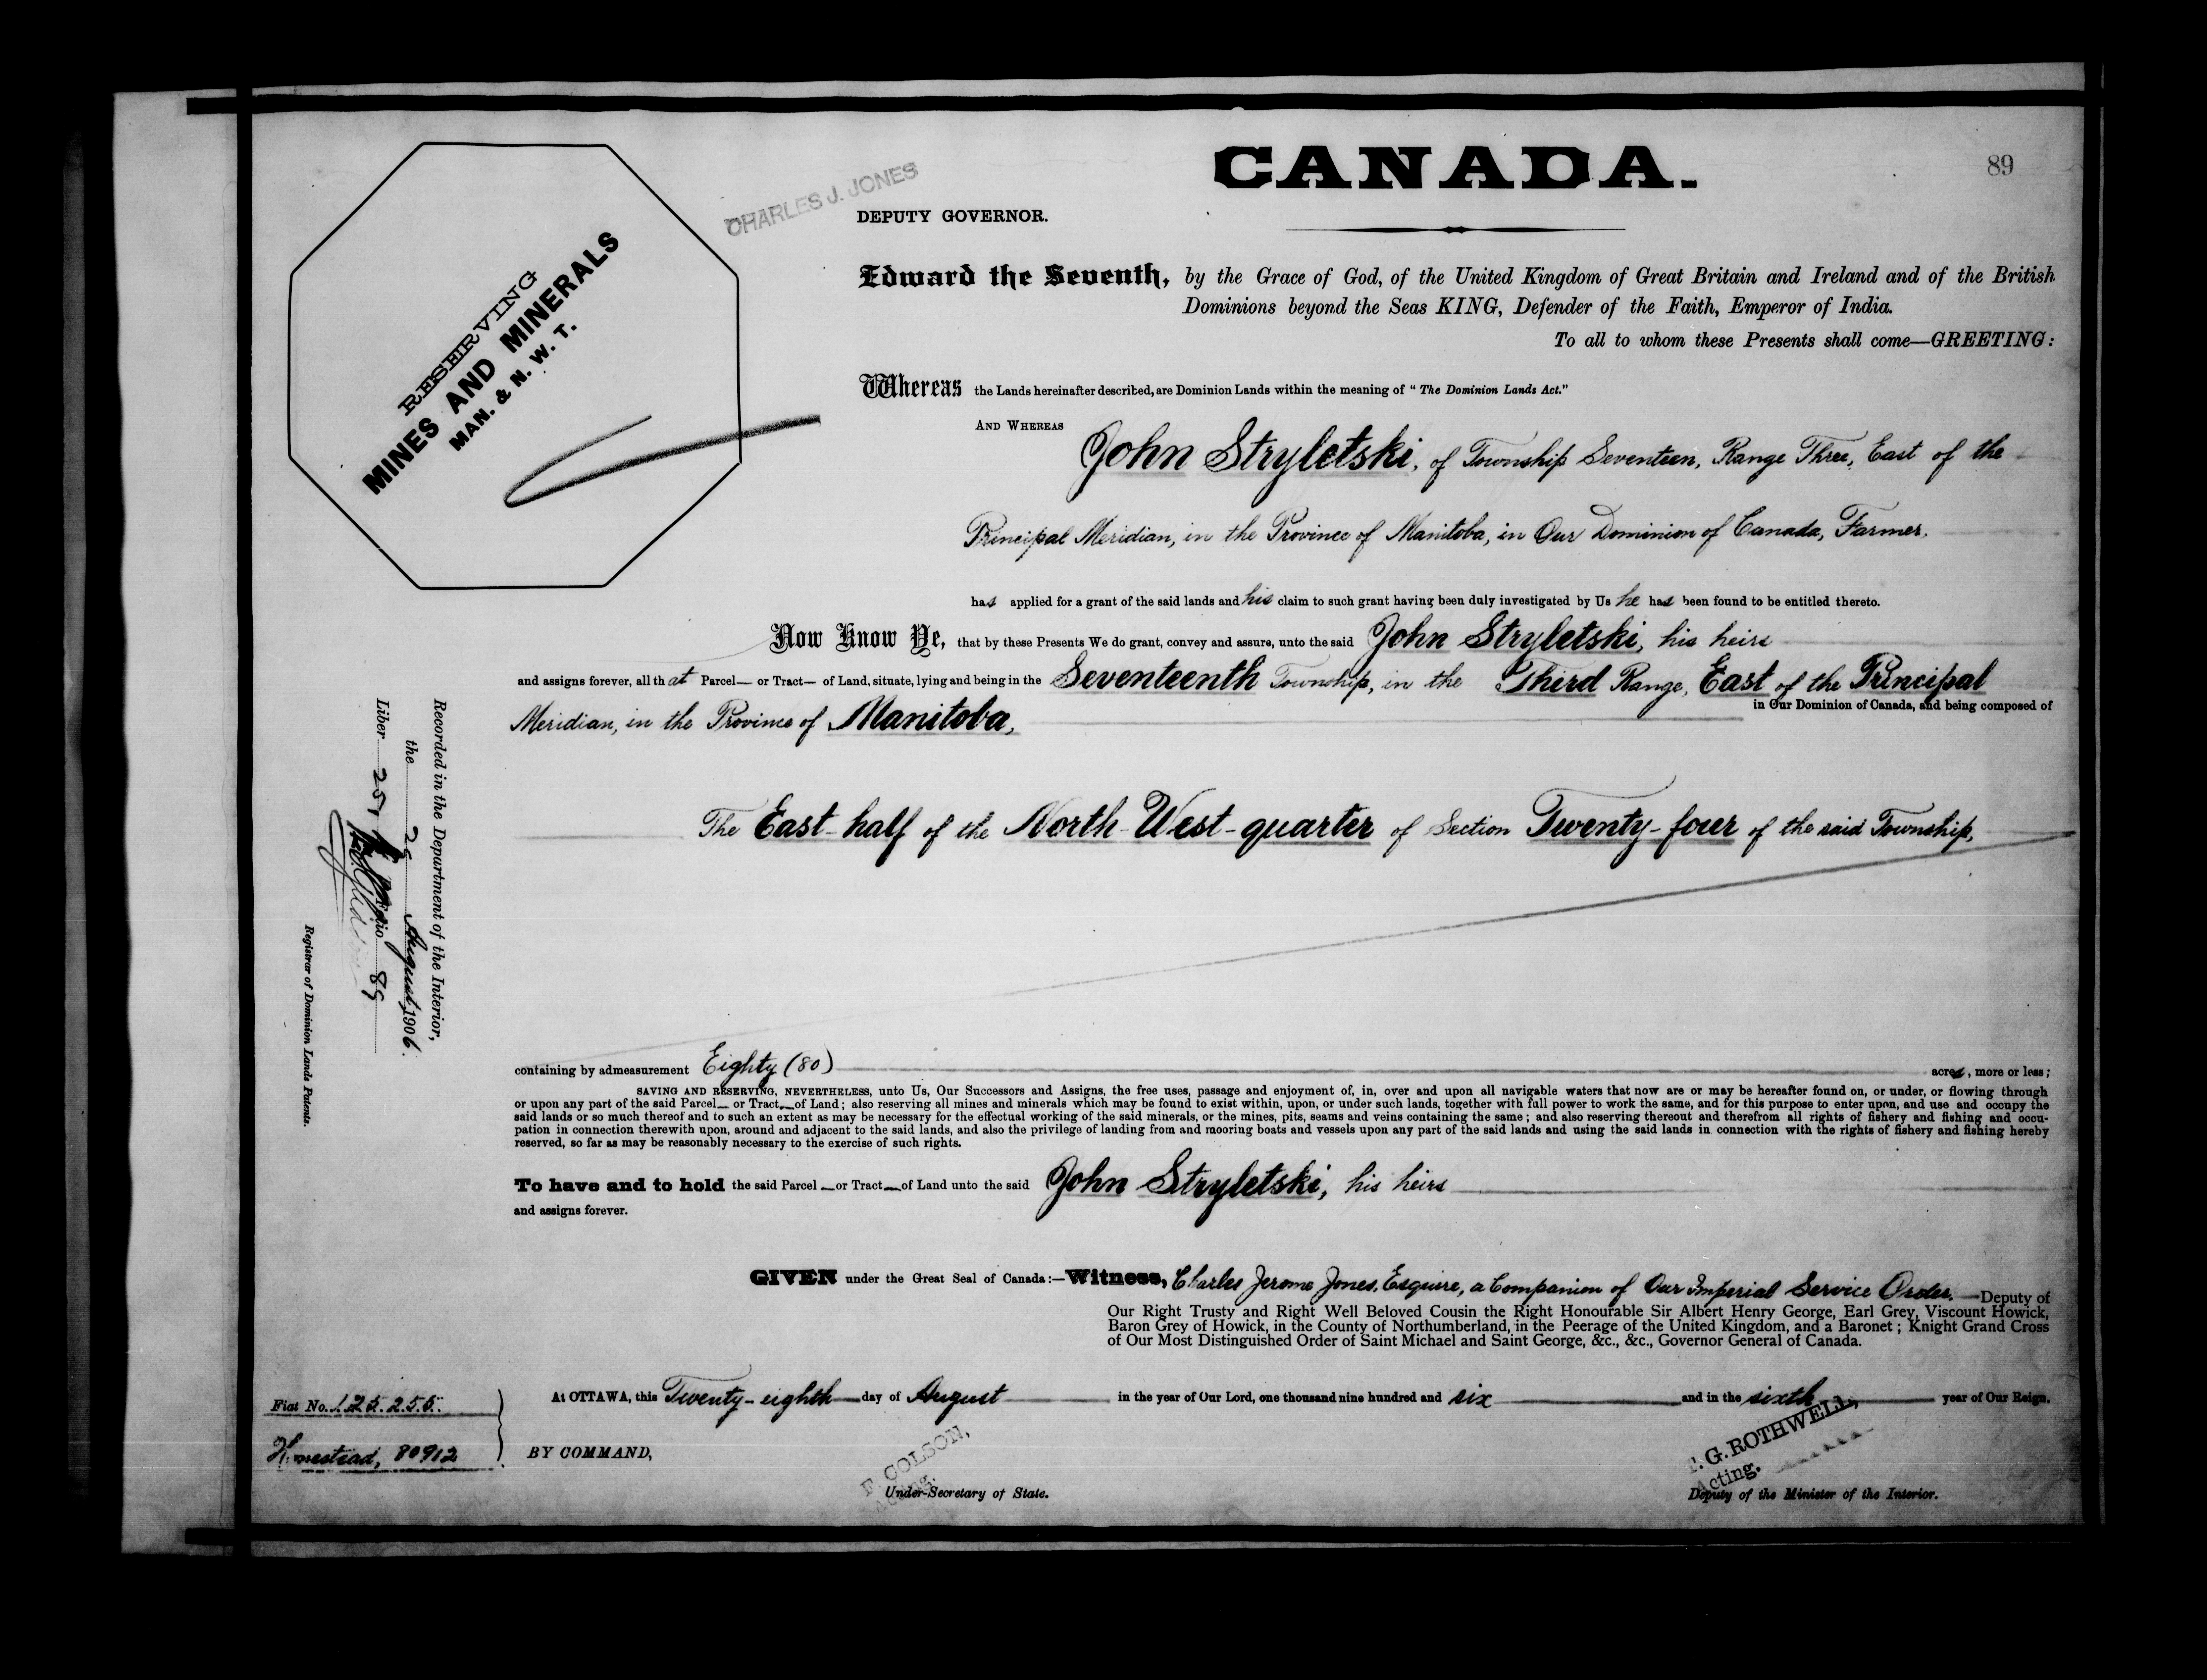 CANADA.
89
CHARLES J. JONES
DEPUTY GOVERNOR.
RESERVING
MINES AND MINERALS
MAN. & N. W. T.
Edward the Seventh, by the Grace of God, of the United Kingdom of Great Britain and Ireland and of the British
Dominions beyond the Seas KING, Defender of the Faith, Emperor of India.
To all to whom these Presents shall come—GREETING:
Whereas the Lands hereinafter described, are Dominion Lands within the meaning of "The Dominion Lands Act."
AND WHEREAS
John Stryletski, of Township Seventeen, Range Three, East of the
Principal Meridian, in the Province of Manitoba, in Our Dominion of Canada, Farmer,
has applied for a grant of the said lands and his claim to such grant having been duly investigated by Us he has been found to be entitled thereto.
Now Know Ye, that by these Presents We do grant, convey and assure, unto the said John Stryletski, his heirs
and assigns forever, all that Parcel— or Tract— of Land, situate, lying and being in the Seventeenth Township, in the Third Range, East of the Principal
Meridian, in the Province of Manitoba,
in Our Dominion of Canada, and being composed of
The East-half of the North-West-quarter of Section Twenty-four of the said Township,
containing by admeasurement Eighty (80) acres, more or less;
SAVING AND RESERVING, NEVERTHELESS, unto Us, Our Successors and Assigns, the free uses, passage and enjoyment of, in, over and upon all navigable waters that now are or may be hereafter found on, or under, or flowing through
or upon any part of the said Parcel— or Tract— of Land; also reserving all mines and minerals which may be found to exist within, upon, or under such lands, together with full power to work the same, and for this purpose to enter upon, and use and occupy the
said lands or so much thereof and to such an extent as may be necessary for the effectual working of the said minerals, or the mines, pits, seams and veins containing the same; and also reserving thereout and therefrom all rights of fishery and fishing and occu-
pation in connection therewith upon, around and adjacent to the said lands, and also the privilege of landing from and mooring boats and vessels upon any part of the said lands and using the said lands in connection with the rights of fishery and fishing hereby
reserved, so far as may be reasonably necessary to the exercise of such rights.
To have and to hold the said Parcel— or Tract— of Land unto the said John Stryletski, his heirs
and assigns forever.
GIVEN under the Great Seal of Canada:—Witness, Charles Jerome Jones, Esquire, a Companion of Our Imperial Service Order, Deputy of
Our Right Trusty and Right Well Beloved Cousin the Right Honourable Sir Albert Henry George, Earl Grey, Viscount Howick,
Baron Grey of Howick, in the County of Northumberland, in the Peerage of the United Kingdom, and a Baronet; Knight Grand Cross
of Our Most Distinguished Order of Saint Michael and Saint George, &c., &c., Governor General of Canada.
At OTTAWA, this Twenty-eighth day of August in the year of Our Lord, one thousand nine hundred and six and in the sixth year of Our Reign.
BY COMMAND,
COLSON,
Acting.
Under-Secretary of State.
G. ROTHWELL,
Acting.
Deputy of the Minister of the Interior.
Fiat No. 125.255.
Homestead, 80912
Recorded in the Department of the Interior,
the 29 August, 1906.
Liber 251 Folio 89
Registrar of Dominion Lands Patents.